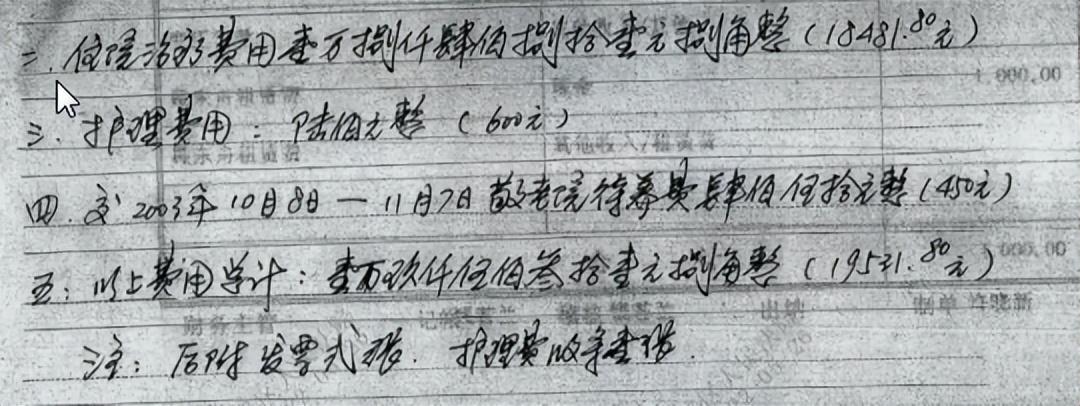 二.住院治疗费用壹万捌仟肆佰捌拾壹元捌角整(18481.80元)
1 000.00
三.护理费用:陆佰元整(600元)
其他收入/租赁费
四.交2003年10月8日—11月7日敬老院待养费肆佰伍拾元整(450元)
五:以上费用总计:壹万玖仟伍佰叁拾壹元捌角整(19531.80元)
000.00
财务主管 记账 出纳 制单 许晓新
注:后附发票贰张.护理费收条壹张.